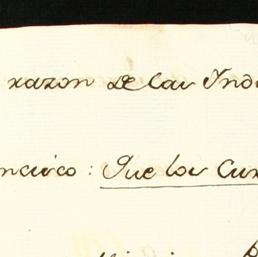 razon de las Ind
ncisco: Que los Cur